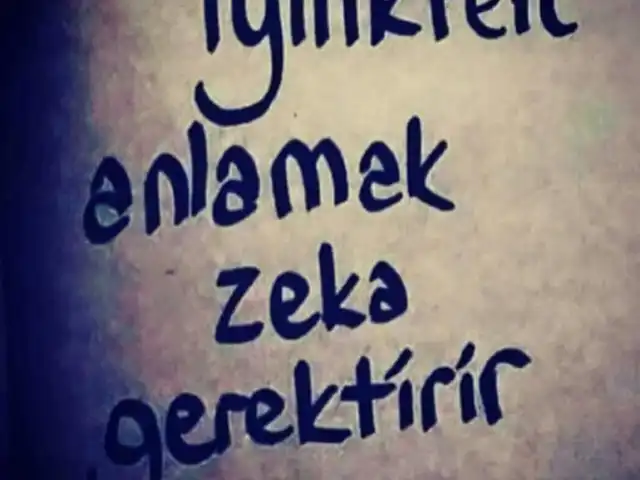 iyilikten
anlamak
zeka
gerektirir